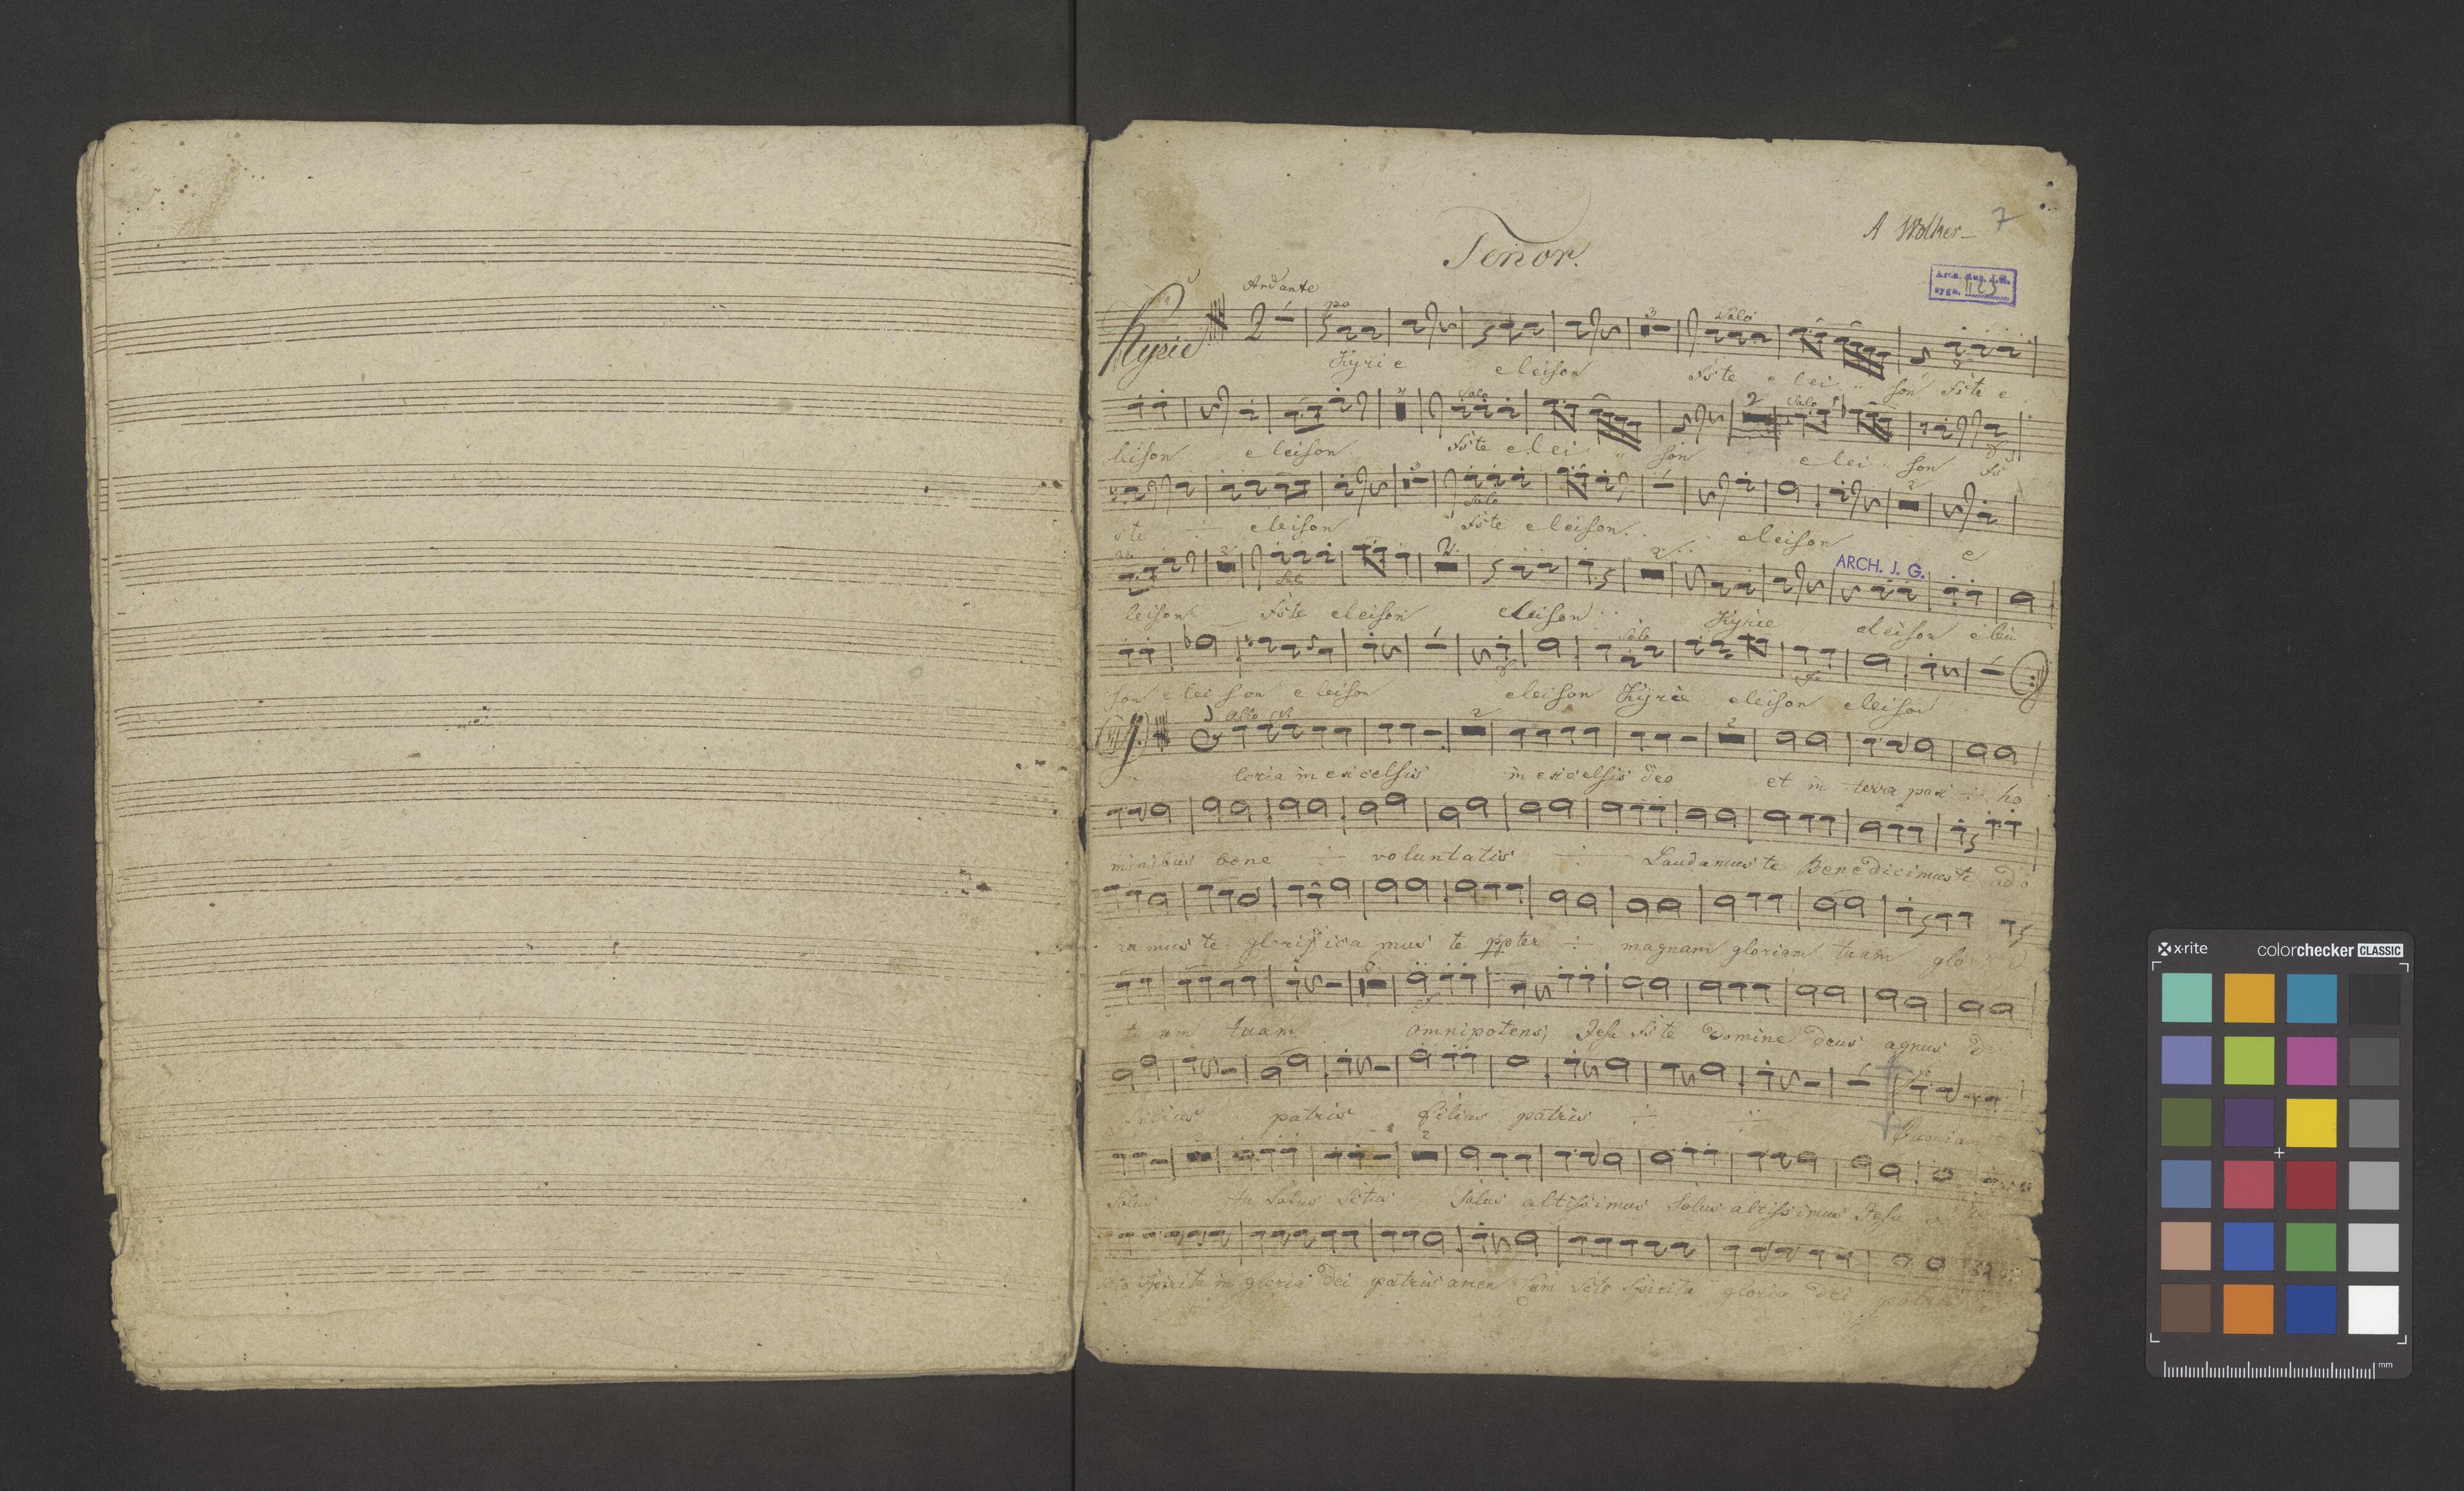 A Wolker 7
Tenor.
Arch. Mus. J. G.
sygn. II 23
Andante
po
Solo
Kyrie
Kyrie eleison Xste elei son Xste e
Solo Solo
leison eleison Xste elei son elei son X
Solo
ste eleison Xste eleison. eleison e
ARCH. J. G.
Solo
leison Xste eleison eleison Kyrie eleison elei
Solo
son eleison eleison eleison Kyrie eleison eleison
allo
loria in excelsis in excelsis deo et in terra pax ho
minibus bone voluntatis Laudamus te Benedicimus te ado
ramus te glorificamus te ppter magnam gloriam tuam glo
am tuam omnipotens, Jesu Xste Domine Deus agnus D
Filius patris filius patris Quoniam
Solus tu Solus Solus altissimus Solus altissimus Jesu
Spiritu in gloria Dei patris amen Cum Scto Spiritu gloria Dei patris
x-rite colorchecker CLASSIC
mm